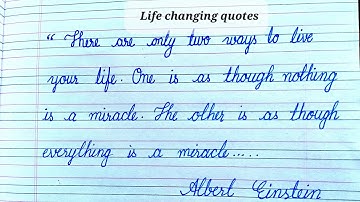 Life changing quotes
“ There are only two ways to live
your life. One is as though nothing
is a miracle. The other is as though
everything is a miracle.....
Albert Einstein